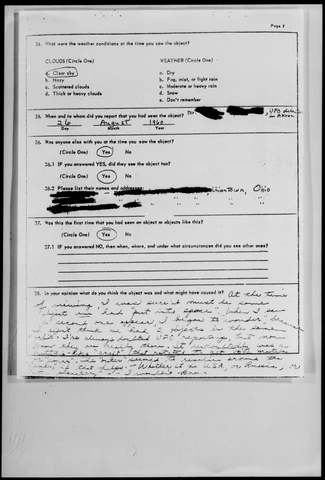 Page 7
34. What were the weather conditions at the time you saw the object?
CLOUDS (Circle One) WEATHER (Circle One)
a. Clear sky a. Dry
b. Hazy b. Fog, mist, or light rain
c. Scattered clouds c. Moderate or heavy rain
d. Thick or heavy clouds d. Snow
e. Don't remember
35. When and to whom did you report that you had seen the object? UFO
in Akron
26 August 1960
Day Month Year
36. Was anyone else with you at the time you saw the object?
(Circle One) Yes No
36.1 IF you answered YES, did they see the object too?
(Circle One) Yes No
36.2 Please list their names and addresses: town, Ohio
" "
" "
37. Was this the first time that you had seen an object or objects like this?
(Circle One) Yes No
37.1 IF you answered NO, then when, where, and under what circumstances did you see other ones?
38. In your opinion what do you think the object was and what might have caused it? At the time
of viewing, I was sure it must be some
object we had put into space. When I saw
the second one appear, I began to wonder because
I don't think we had 2 objects in the same
orbit. I've always doubted UFO reportings, but now
know they are really there. It
like
the outer seemed to revolve around the
if that helps. Whether it be USA, or Russia, or
I wouldn't know.